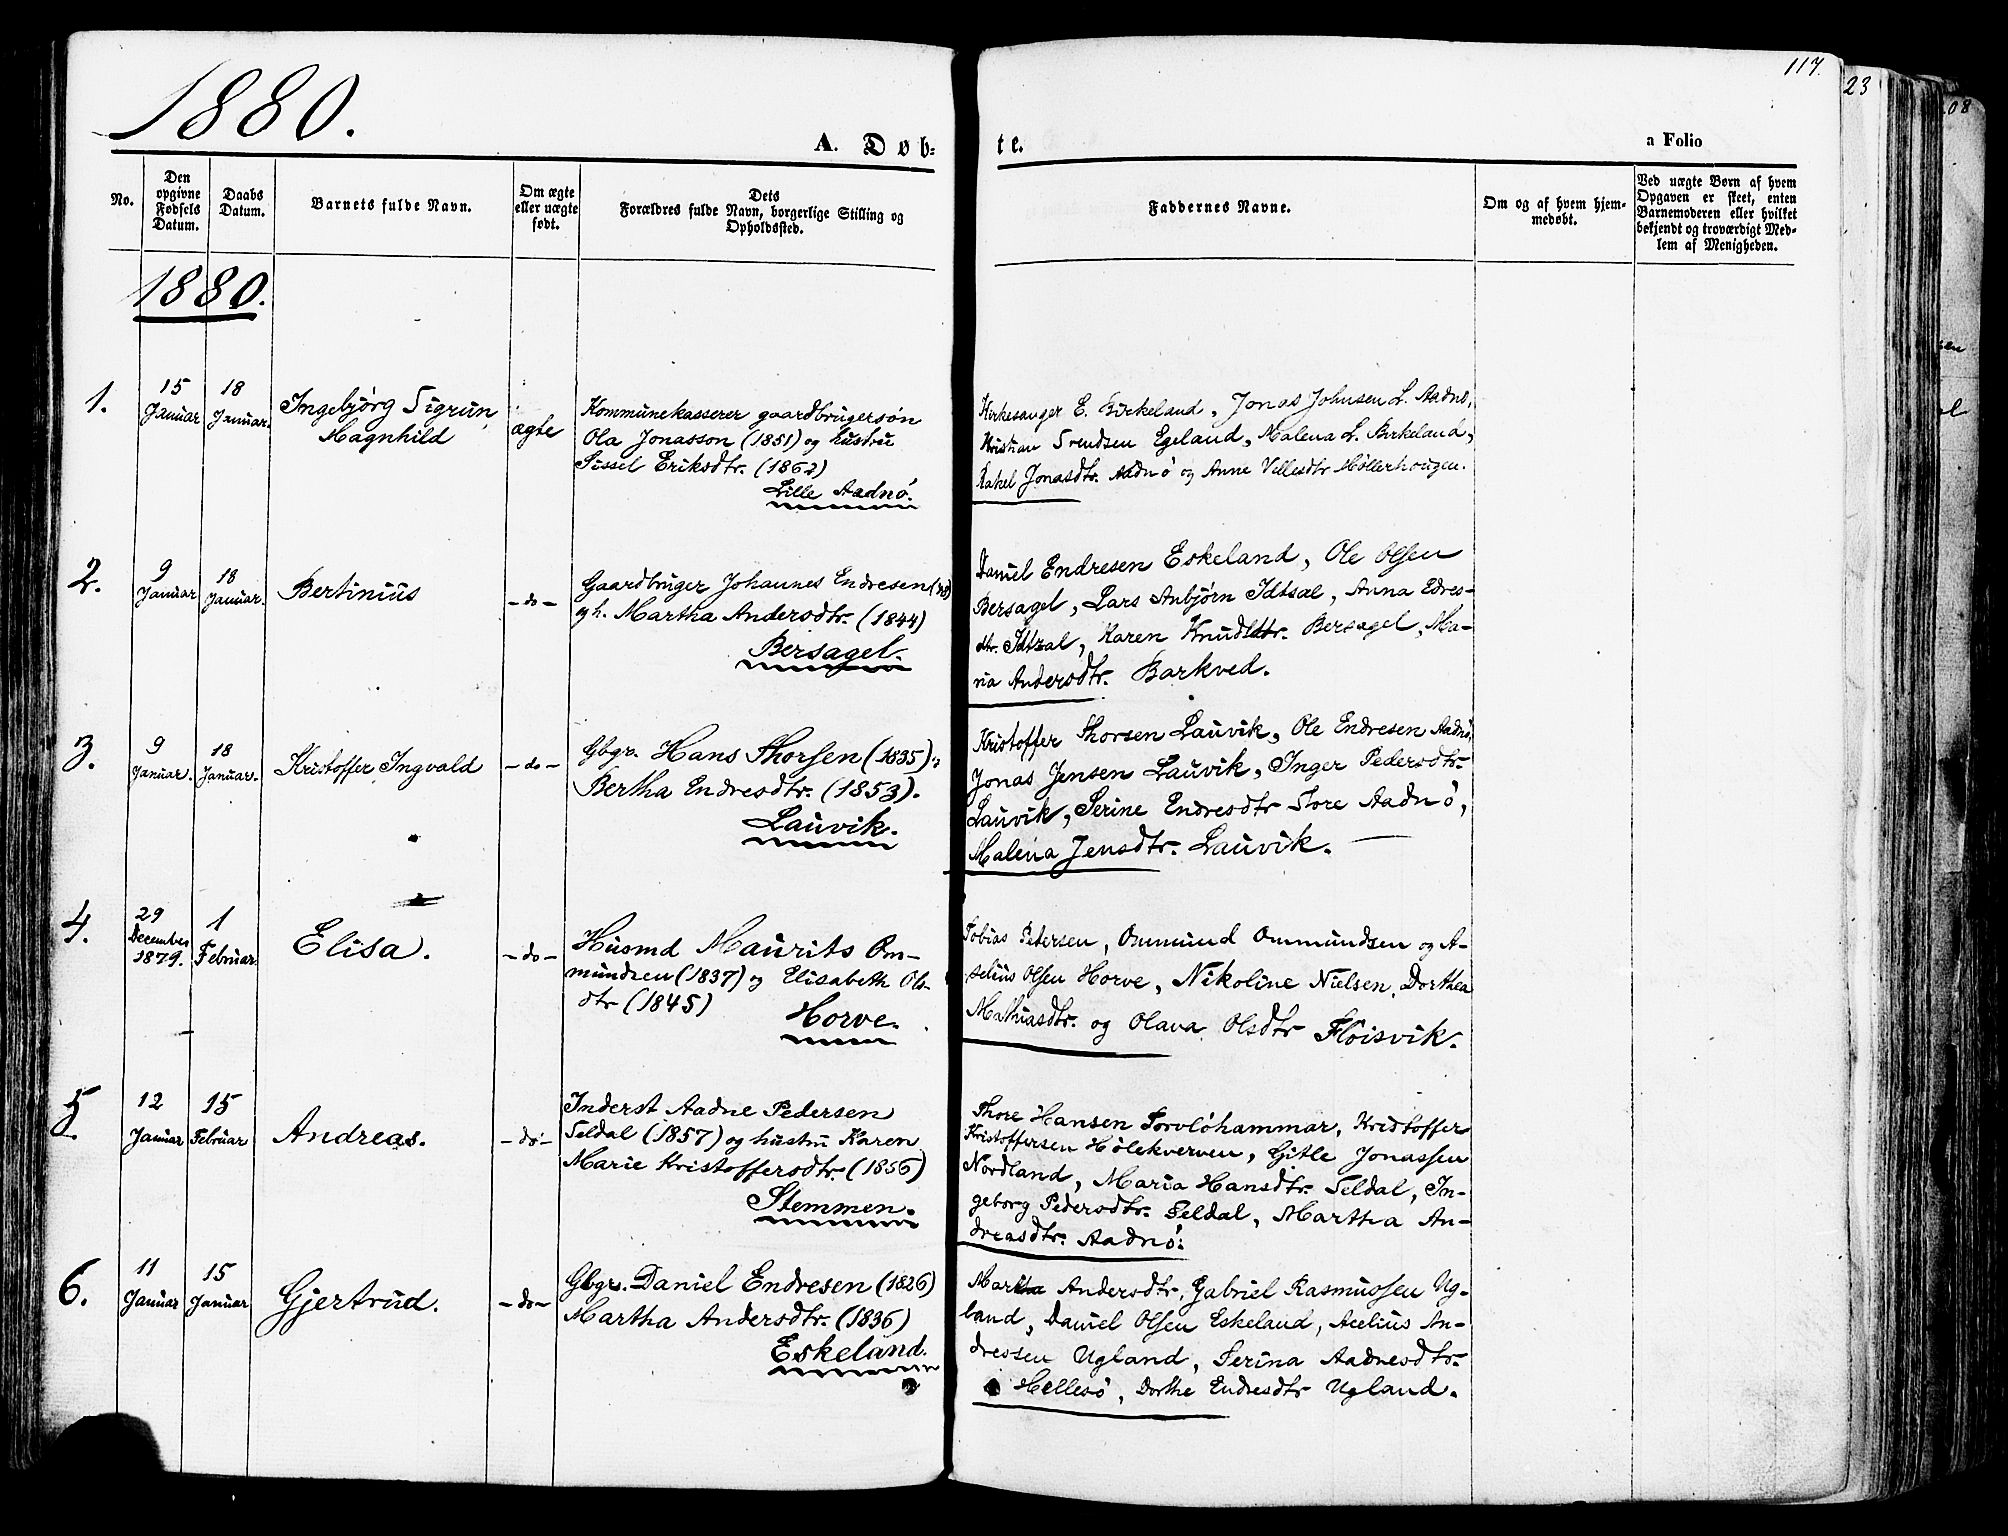 1880.
117.
23
08
A. Døb-
te.
a Folio
No.
Den opgivne Fødsels Datum.
Daabs Datum.
Barnets fulde Navn.
Om ægte eller uægte født.
Dets Forældres fulde Navn, borgerlige Stilling og Opholdssted.
Faddernes Navne.
Om og af hvem hjemmedøbt.
Ved uægte Børn af hvem Opgaven er skeet, enten Barnemoderen eller hvilket bekjendt og troværdigt Medlem af Menigheden.
1880.
1.
15 Januar
18 Januar.
Ingebjørg Sigrun
Magnhild
ægte
Kommunekasserer gaardbrugersøn
Ola Jonasson (1851) og hustru
Sissel Eriksdtr. (1862)
Lille Aadnø.
Kirkesanger E. Birkeland, Jonas Johnsen L. Aadnø,
Kristian Svendsen Egeland, Malena L. Birkeland,
Rakel Jonasdtr. Aadnø og Anne Villesdtr Møllerhougen.
2.
9 Januar
18 Januar.
Bertinius
- do -
Gaardbruger Johannes Endresen
og h. Martha Andersdtr. (1844)
Bersagel.
Daniel Endresen Eskeland, Ole Olsen
Bersagel, Lars Anbjørn Idtsal, Anna Edres-
dtr. Idtzal, Karen Knudsdtr. Bersagel, Ma-
ria Andersdtr. Barkved.
3.
9 Januar.
18 Januar.
Kristoffer Ingvald
- do -
Gbgr. Hans Thorsen (1835) :
Bertha Endresdtr. (1853).
Lauvik.
Kristoffer Thorsen Lauvik, Ole Endresen Aadnø,
Jonas Jensen Lauvik, Inger Pedersdtr.
Lauvik, Serine Endresdtr Store Aadnø,
Malena Jensdtr. Lauvik.
4.
29 December 1879.
1 Februar.
Elisa.
- do -
Husmd Maurits Om-
mundsen (1837) og Elisabeth Ols-
dtr (1845)
Horve.
Tobias Petersen, Ommund Ommundsen og A-
selius Olsen Horve, Nikoline Nielsen, Dorthea
Mathiasdtr. og Olava Olsdtr Fløisvik.
5.
12 Januar
15 Februar
Andreas.
- do -
Inderst Aadne Pedersen
Seldal (1857) og hustru Karen
Marie Kristoffersdtr. (1856)
Stemmen.
Thore Hansen Torvløhammar, Kristoffer
Kristoffersen Hølekverven, Gitle Jonassen
Nordland, Maria Hansdtr. Seldal, In-
geborg Pedersdtr. Seldal, Martha An-
dreasdtr. Aadnø.
6.
11 Januar
15 Januar
Gjertrud.
- do -
Gbgr. Daniel Endresen (1826)
Martha Andersdtr. (1836)
Eskeland.
Martha Andersdtr, Gabriel Rasmussen Ug-
land, Daniel Olsen Eskeland, Acelius An-
dressen Ugland, Serina Aadnesdtr.
Hellesø, Dorthe Endresdtr Ugland.